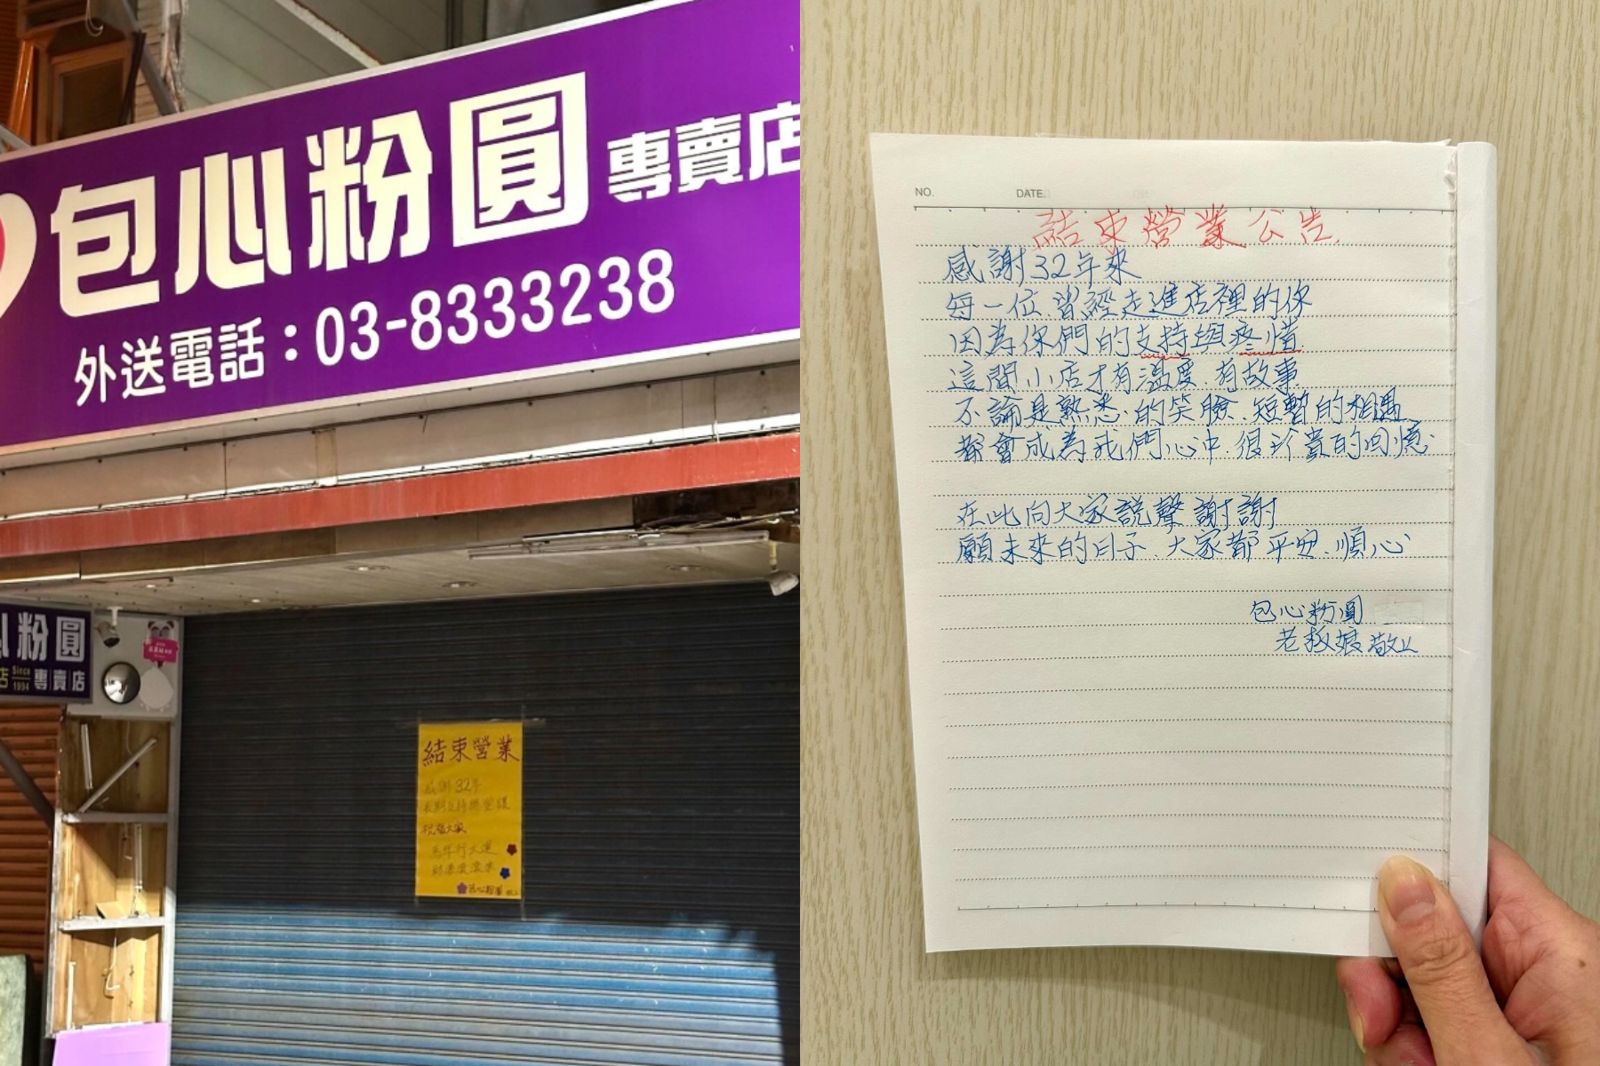 包心粉圓專賣店
外送電話：03-8333238
心粉圓
店 Since 1994 專賣店
結束營業
感謝32年
祝福大家
馬年行大運
包心粉圓
NO. DATE.
結束營業公告
感謝32年來
每一位曾經走進店裡的你
因為你們的支持與疼惜
這間小店才有溫度 有故事
不論是熟悉的笑臉、短暫的相遇
都會成為我們心中、很珍貴的回憶
在此向大家說聲謝謝
願未來的日子、大家都平安、順心
包心粉圓
老板娘敬上